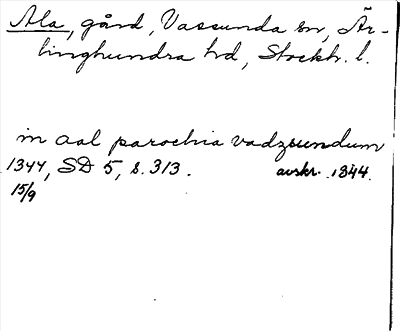 Ala, gård, Vassunda sn, Är-
linghundra hd, Stockh. l.
in aal parochia vadzsundum
1344, SD 5, s. 313. avskr. 1344.
15/9